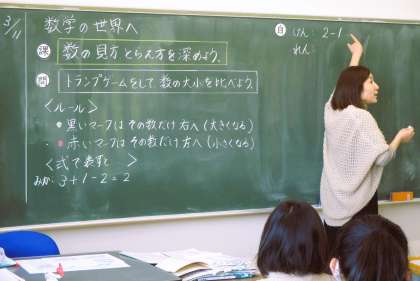 3/11
数学の世界へ
課 数の見方とらえ方を深めよう。
問 トランプゲームをして数の大小を比べよう。
<ルール>
・黒いマークはその数だけ右へ(大きくなる)
・赤いマークはその数だけ左へ(小さくなる)
<式で表すと >
みか:3+1-2=2
自 けん: 2-1
れん: